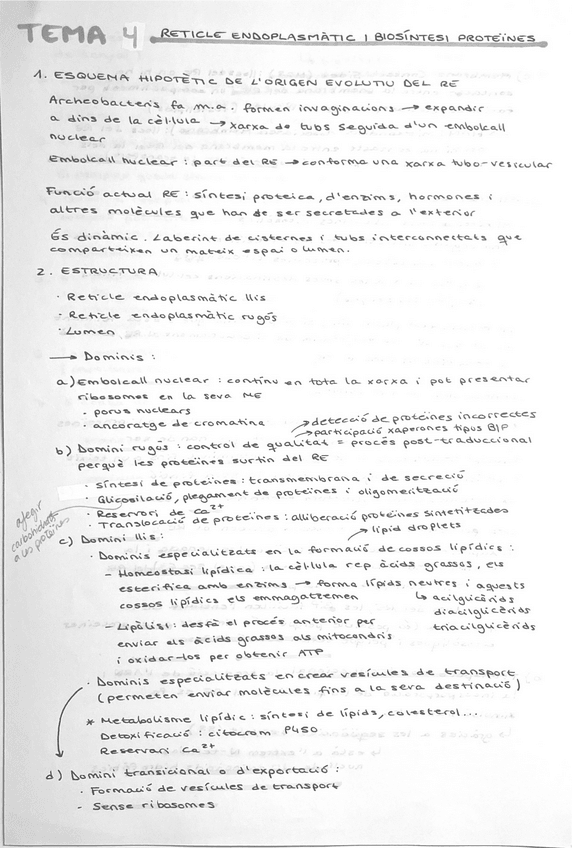 TEMA 4 RETICLE ENDOPLASMÀTIC I BIOSÍNTESI PROTEÏNES
1. ESQUEMA HIPOTÈTIC DE L'ORIGEN EVOLUTIU DEL RE
Archeobacteris fa m.a. formen invaginacions → expandir
a dins de la cèl·lula → xarxa de tubs seguida d'un embolcall
nuclear
Embolcall nuclear : part del RE → conforma una xarxa tubo-vesicular
Funció actual RE : síntesi proteica, d'enzims, hormones i
altres molècules que han de ser secretades a l'exterior
És dinàmic. Laberint de cisternes i tubs interconnectats que
comparteixen un mateix espai o lumen.
2. ESTRUCTURA
· Reticle endoplasmàtic llis
· Reticle endoplasmàtic rugós
· Lumen
→ Dominis :
a) Embolcall nuclear : continu en tota la xarxa i pot presentar
ribosomes en la seva ME
· porus nuclears
· ancoratge de cromatina
→ detecció de proteïnes incorrectes
→ participació xaperones tipus BIP
b) Domini rugós : control de qualitat = procés post-traduccional
perquè les proteïnes surtin del RE
· síntesi de proteïnes : transmembrana i de secreció
· Glicosilació, plegament de proteïnes i oligomerització
afegir
carbohidrats
a les proteïnes
· Reservori de Ca²⁺
· Translocació de proteïnes : alliberació proteïnes sintetitzades
c) Domini llis :
→ lipid droplets
· Dominis especialitzats en la formació de cossos lipídics :
- Homeostasi lipídica : la cèl·lula rep àcids grassos, els
esterifica amb enzims → forma lípids neutres i aquests
cossos lipídics els emmagatzemen
↳ acilglicèrids
diacilglicèrids
triacilglicèrids
- Lipòlisi : desfà el procés anterior per
enviar els àcids grassos als mitocondris
i oxidar-los per obtenir ATP
· Dominis especialitzats en crear vesícules de transport
(permeten enviar molècules fins a la seva destinació)
* Metabolisme lipídic : síntesi de lípids, colesterol...
Detoxificació : citocrom P450
Reservori Ca²⁺
d) Domini transicional o d'exportació :
· Formació de vesícules de transport
- Sense ribosomes